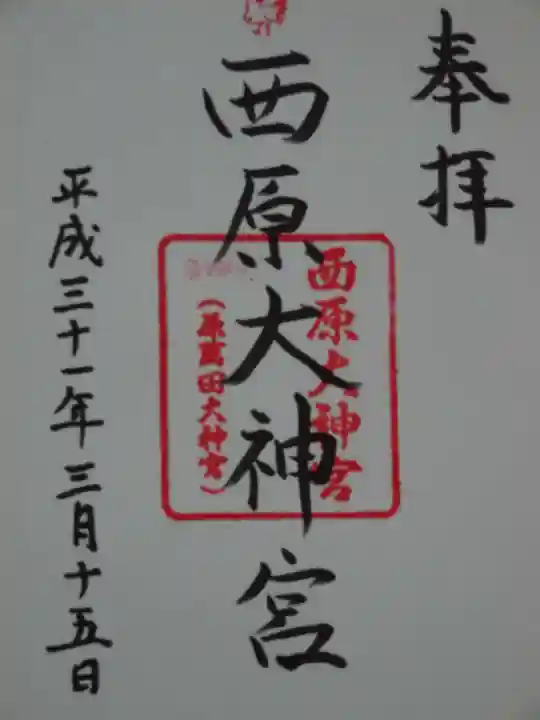 奉拝
西原大神宮
西原大神宮
(原萬田大神宮)
平成三十一年三月十五日